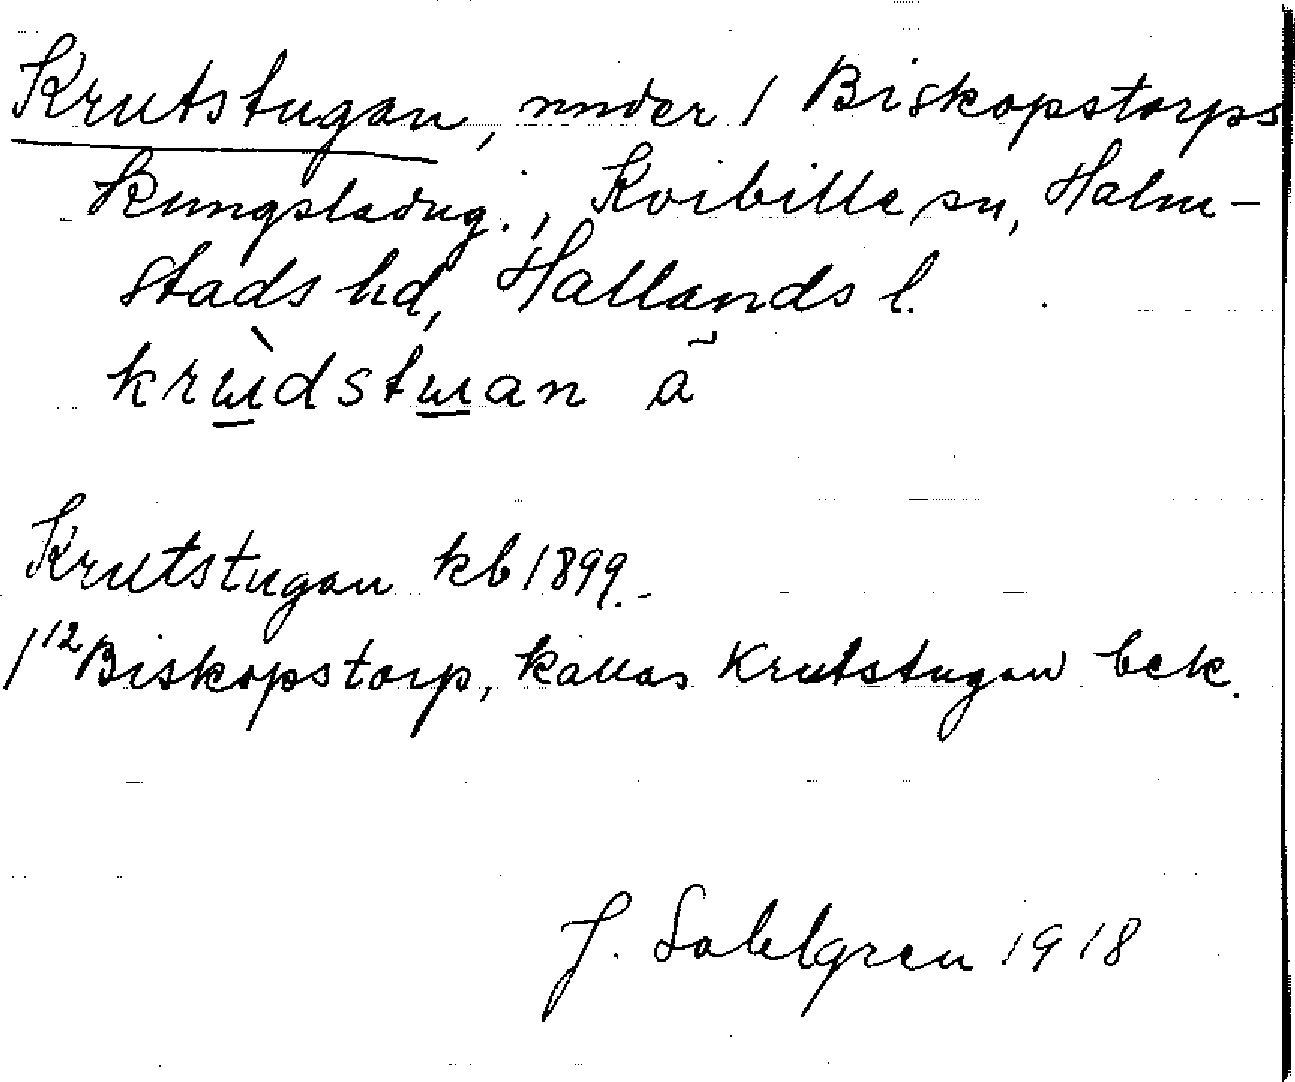 Krutstugan, under 1 Biskopstorps
kungsladug., Kvibille sn, Halm-
stads hd, Hallands l.
krɯ̀dstɯan a
Krutstugan kb 1899.
1¹² Biskopstorp, kallas Krutstugan bek.
J. Sahlgren 1918